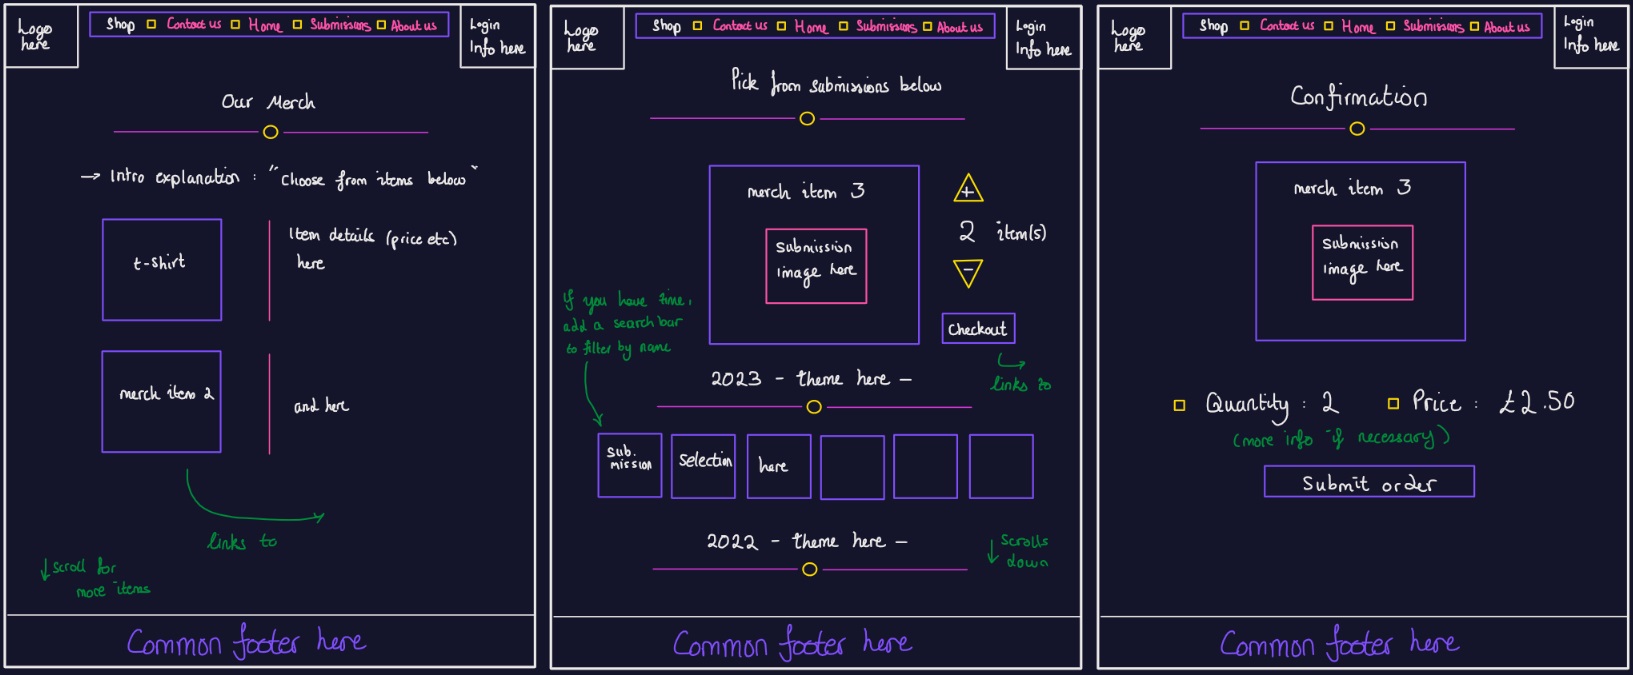 Logo
here
Shop Contact us Home Submissions About us
Login
Info here
Our Merch
→ Intro explanation : "Choose from items below"
t-shirt
Item details (price etc)
here
merch item 2
and here
links to
↓ Scroll for
more items
Common footer here
Logo
here
Shop Contact us Home Submissions About us
Login
Info here
Pick from submissions below
merch item 3
Submission
image here
+
2 item(s)
-
Checkout
links to
If you have time,
add a search bar
to filter by name
2023 - theme here -
Sub.
mission
Selection
here
2022 - theme here -
↓ Scrolls
down
Common footer here
Logo
here
Shop Contact us Home Submissions About us
Login
Info here
Confirmation
merch item 3
Submission
image here
Quantity : 2 Price : £2.50
(more info if necessary)
Submit order
Common footer here